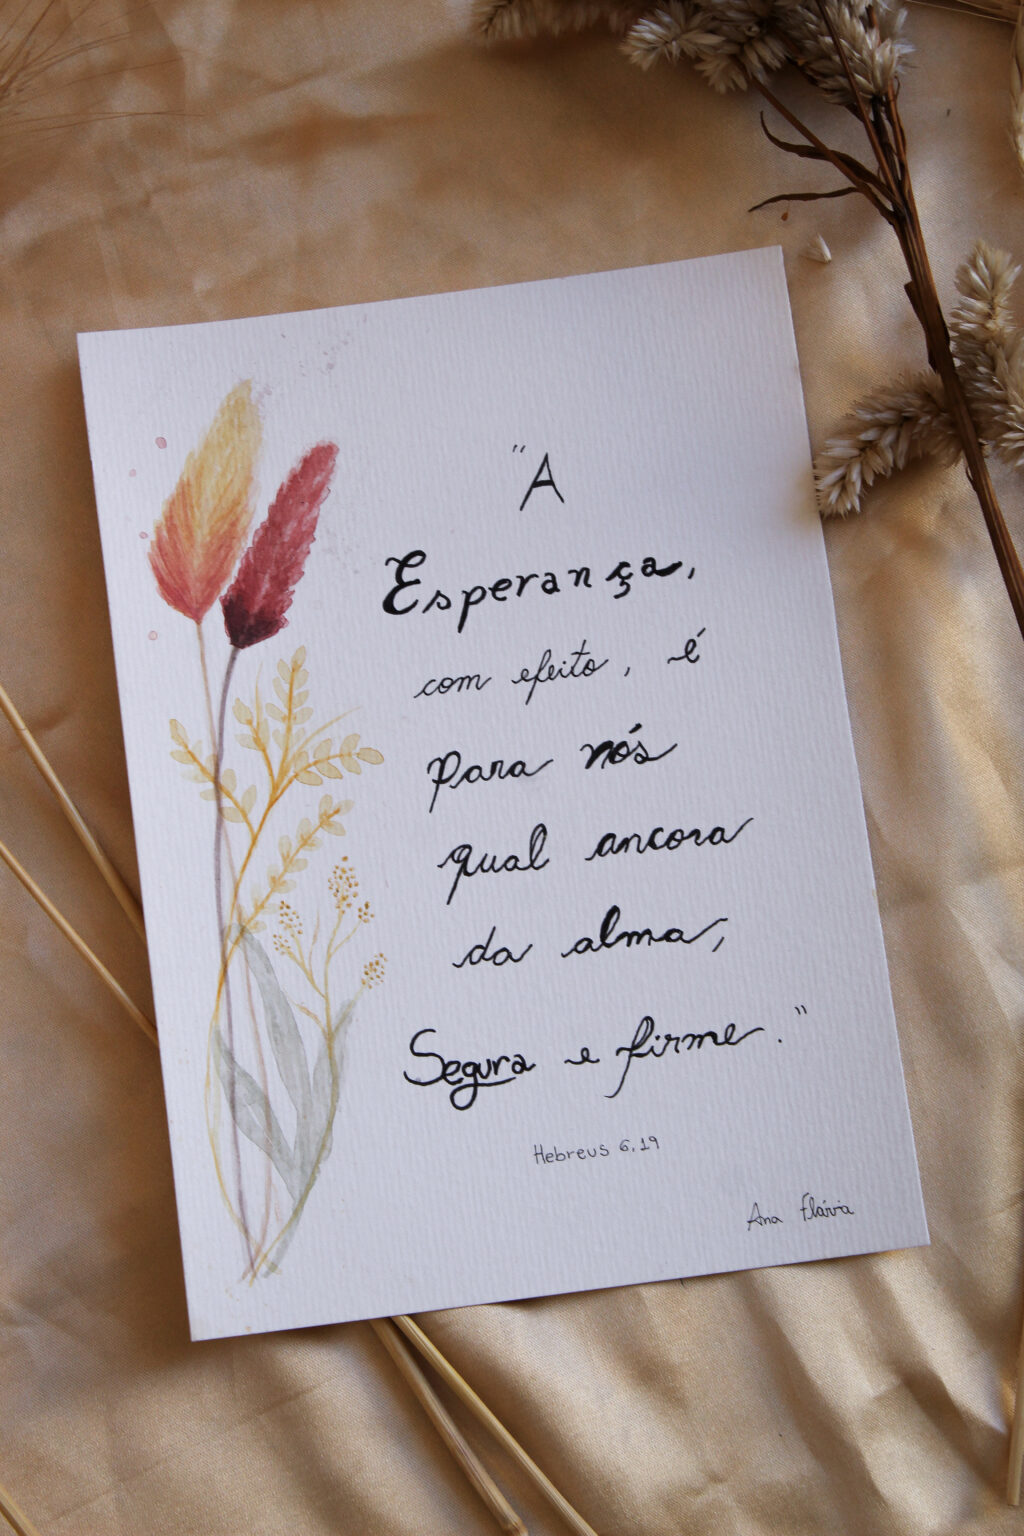 "A
Esperança,
com efeito, é
para nós
qual ancora
da alma,
Segura e firme."
Hebreus 6,19
Ana Flávia